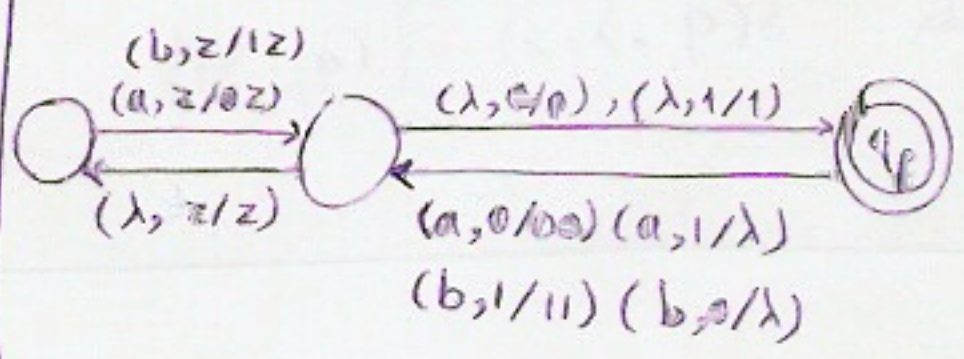 (b,z/1z)
(a,z/0z)
(λ,0/0),(λ,1/1)
q_f
(λ, z/z)
(a,0/00)(a,1/λ)
(b,1/11)(b,0/λ)